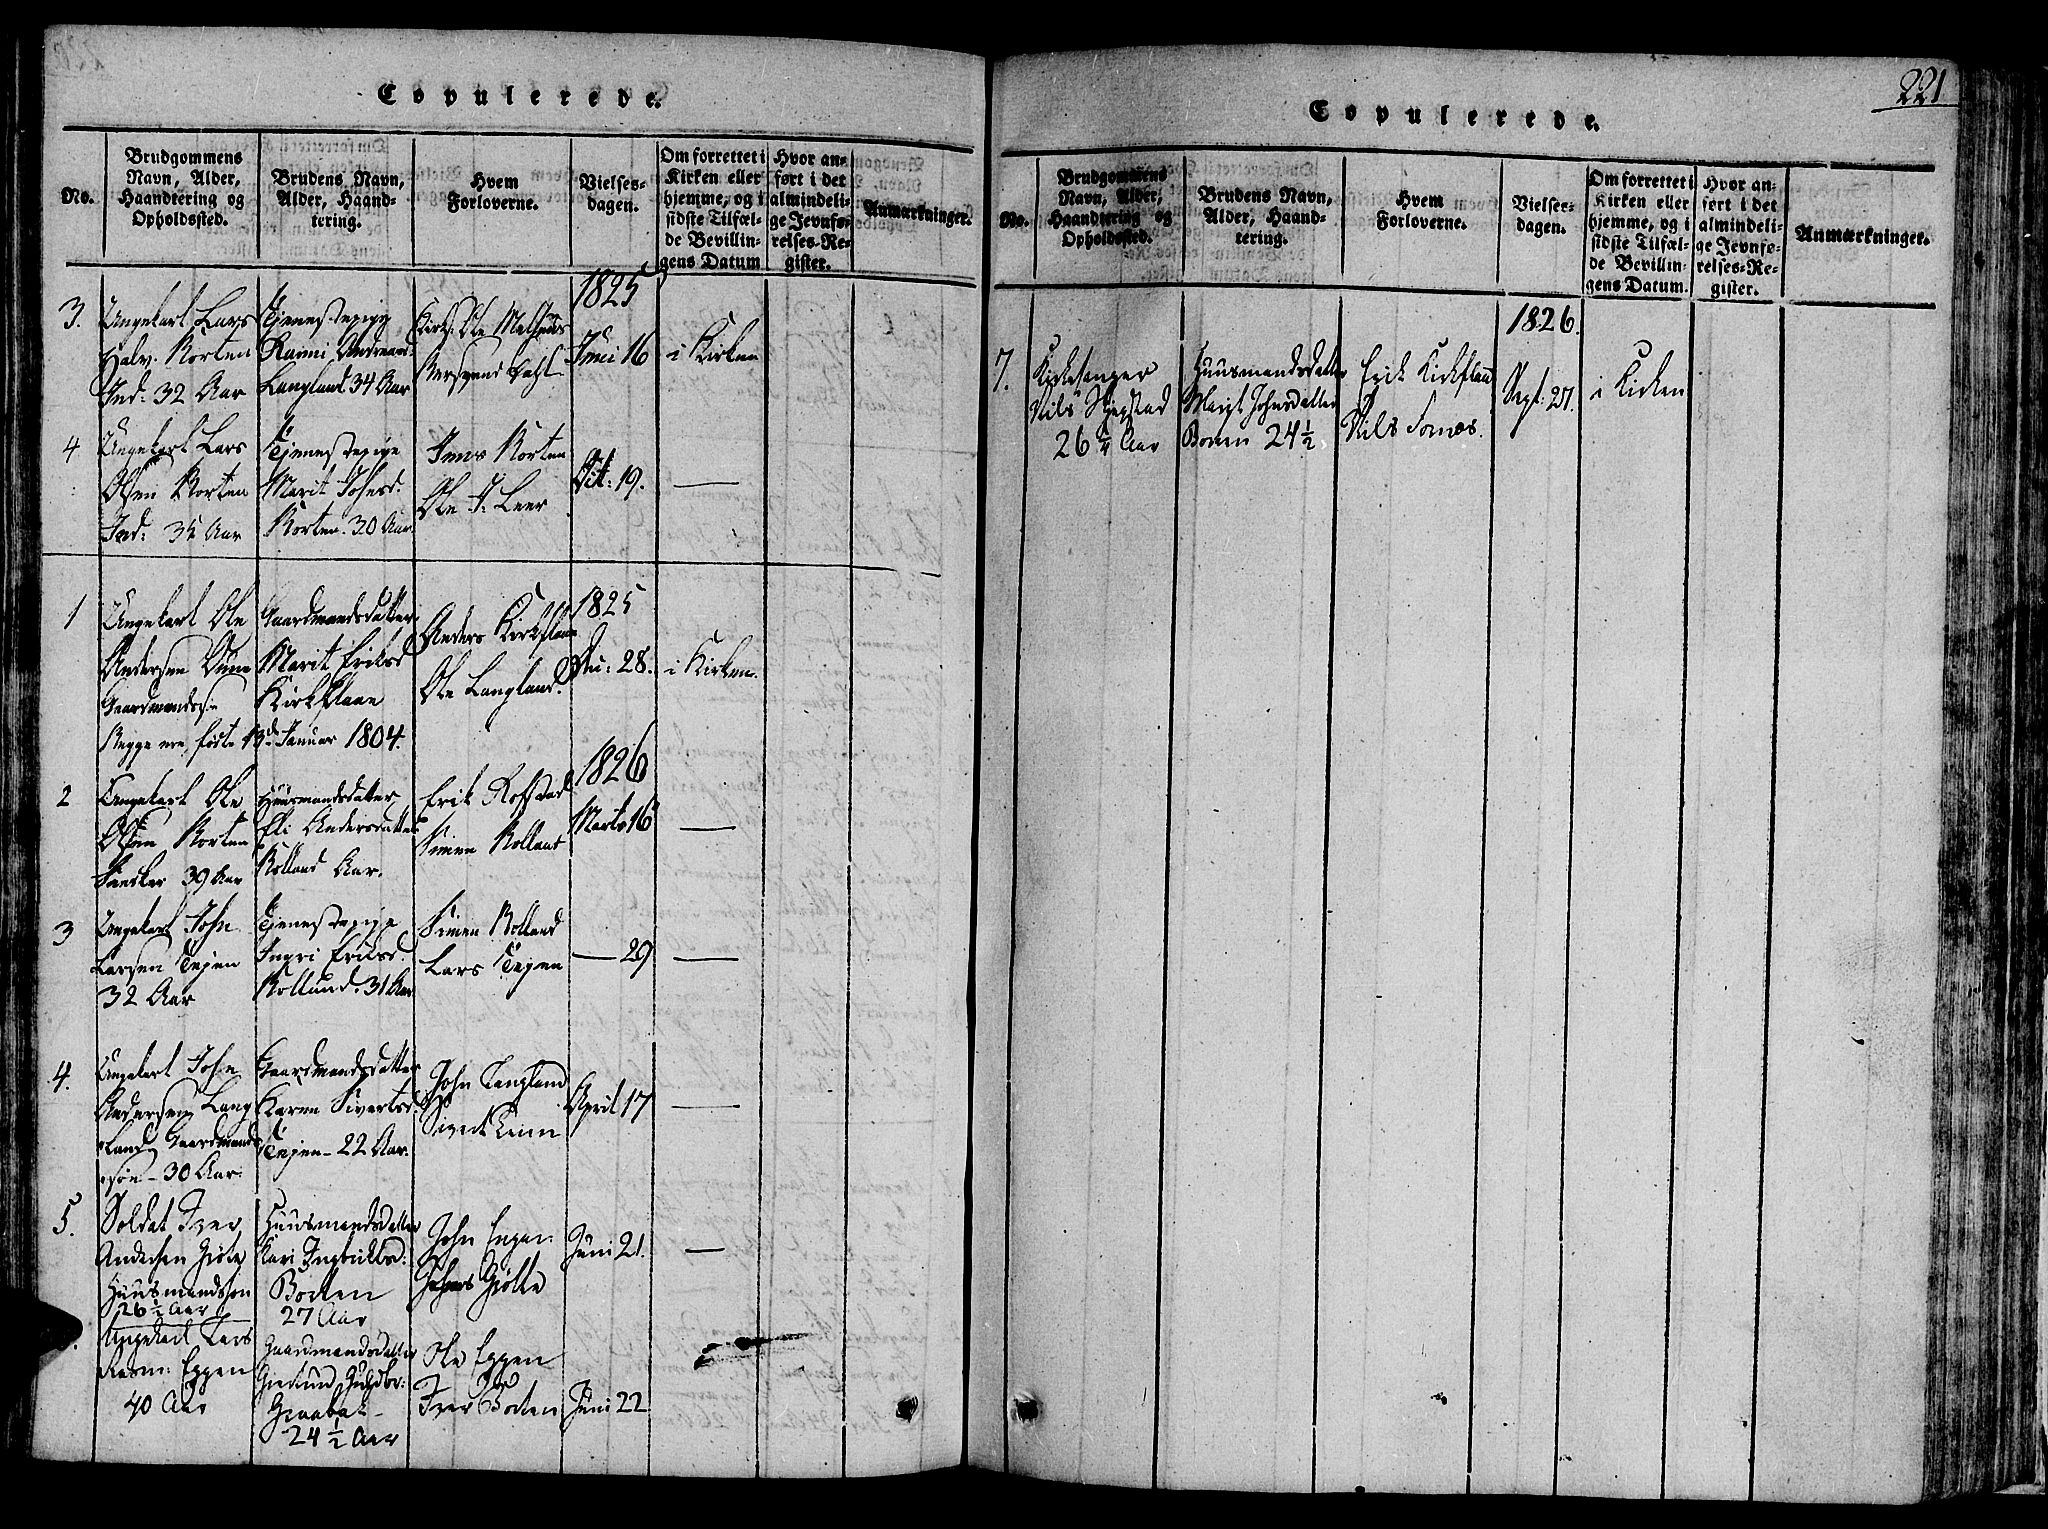 Copulerede.
No.
Brudgommens
Navn, Alder,
Haandtering og
Opholdssted.
Brudens Navn,
Alder, Haand-
tering.
Hvem
Forloverne.
Vielses-
dagen.
Om forrettet i
Kirken eller
hjemme, og i
sidste Tilfæl-
de Bevillin-
gens Datum
Hvor an-
ført i det
almindeli-
ge Jevnfø-
relses-Re-
gister.
Anmærkninger.
3.
Ungekarl Lars
Halv. Korten
Ind: 32 Aar
Tjenestepige
Langland 34 Aar
Ole
Dahl
1825
Juni 16
i Kirken
4
Ungekarl Lars
Olsen Korten
Ind: 35 Aar
Tjenestepige
Marit Johnsd.
Korten. 30 Aar
Jens Korten
Ole J. Leer
Oct: 19.
—
1
Ungekarl Ole
Andersen
Gaardmandssøn
Gaardmandsdatter
Marit Eriksd
Kirkflaae
Begge ere født 13de Januar 1804.
Anders Kirkflaae
Ole Langland.
1825
Dec: 28.
i Kirken.
2
Ungekarl Ole
Olsen Korten
39 Aar
Huusmandsdatter
Eli Andersdatter
Kolland Aar.
Erik Rofstad
Simen Kolland
1826
Marts 16
—
3
Ungekarl John
Larsen Tejen
32 Aar
Tjenestepige
Ingri Eriksd.
Kolland. 31 Aar
Simen Kolland
Lars Tejen
— 29
—
4.
Ungekarl John
Andersen Lang
land Gaardmands
søn - 30 Aar.
Gaardmandsdatter
Karen Sivertsd.
Tejen - 22 Aar.
John Langland
Sivert
April 17
—
5.
Soldat Iver
Andersen Gjöte
Huusmandssøn
26 1/2 Aar
Huusmandsdatter
Kari Ingbrittsd:
Borten
27 Aar
John Engen
Johns Gjölte
Juni 21.
—
Ungekarl Lars
Rasm: Eggen
40 Aar
Gaardmandsdatter
Gjertrud Guldbr:
Graabak -
24 1/2 Aar
Ole Eggen
Iver Borten
Juni 22
221
Copulerede.
No.
Brudgommens
Navn, Alder,
Haandtering og
Opholdssted.
Brudens Navn,
Alder, Haand-
tering.
Hvem
Forloverne.
Vielses-
dagen.
Om forrettet i
Kirken eller
hjemme, og i
sidste Tilfæl-
de Bevillin-
gens Datum.
Hvor an-
ført i det
almindeli-
ge Jevnfø-
relses-Re-
gister.
Anmærkninger.
7.
Kirkesanger
Nils Skjegstad
26 1/4 Aar
Huusmandsdatter
Marit Johnsdatter
Borten 24 1/2
Erik Kirkflaae
Nils Fornes.
1826.
Sept: 27.
i Kirken